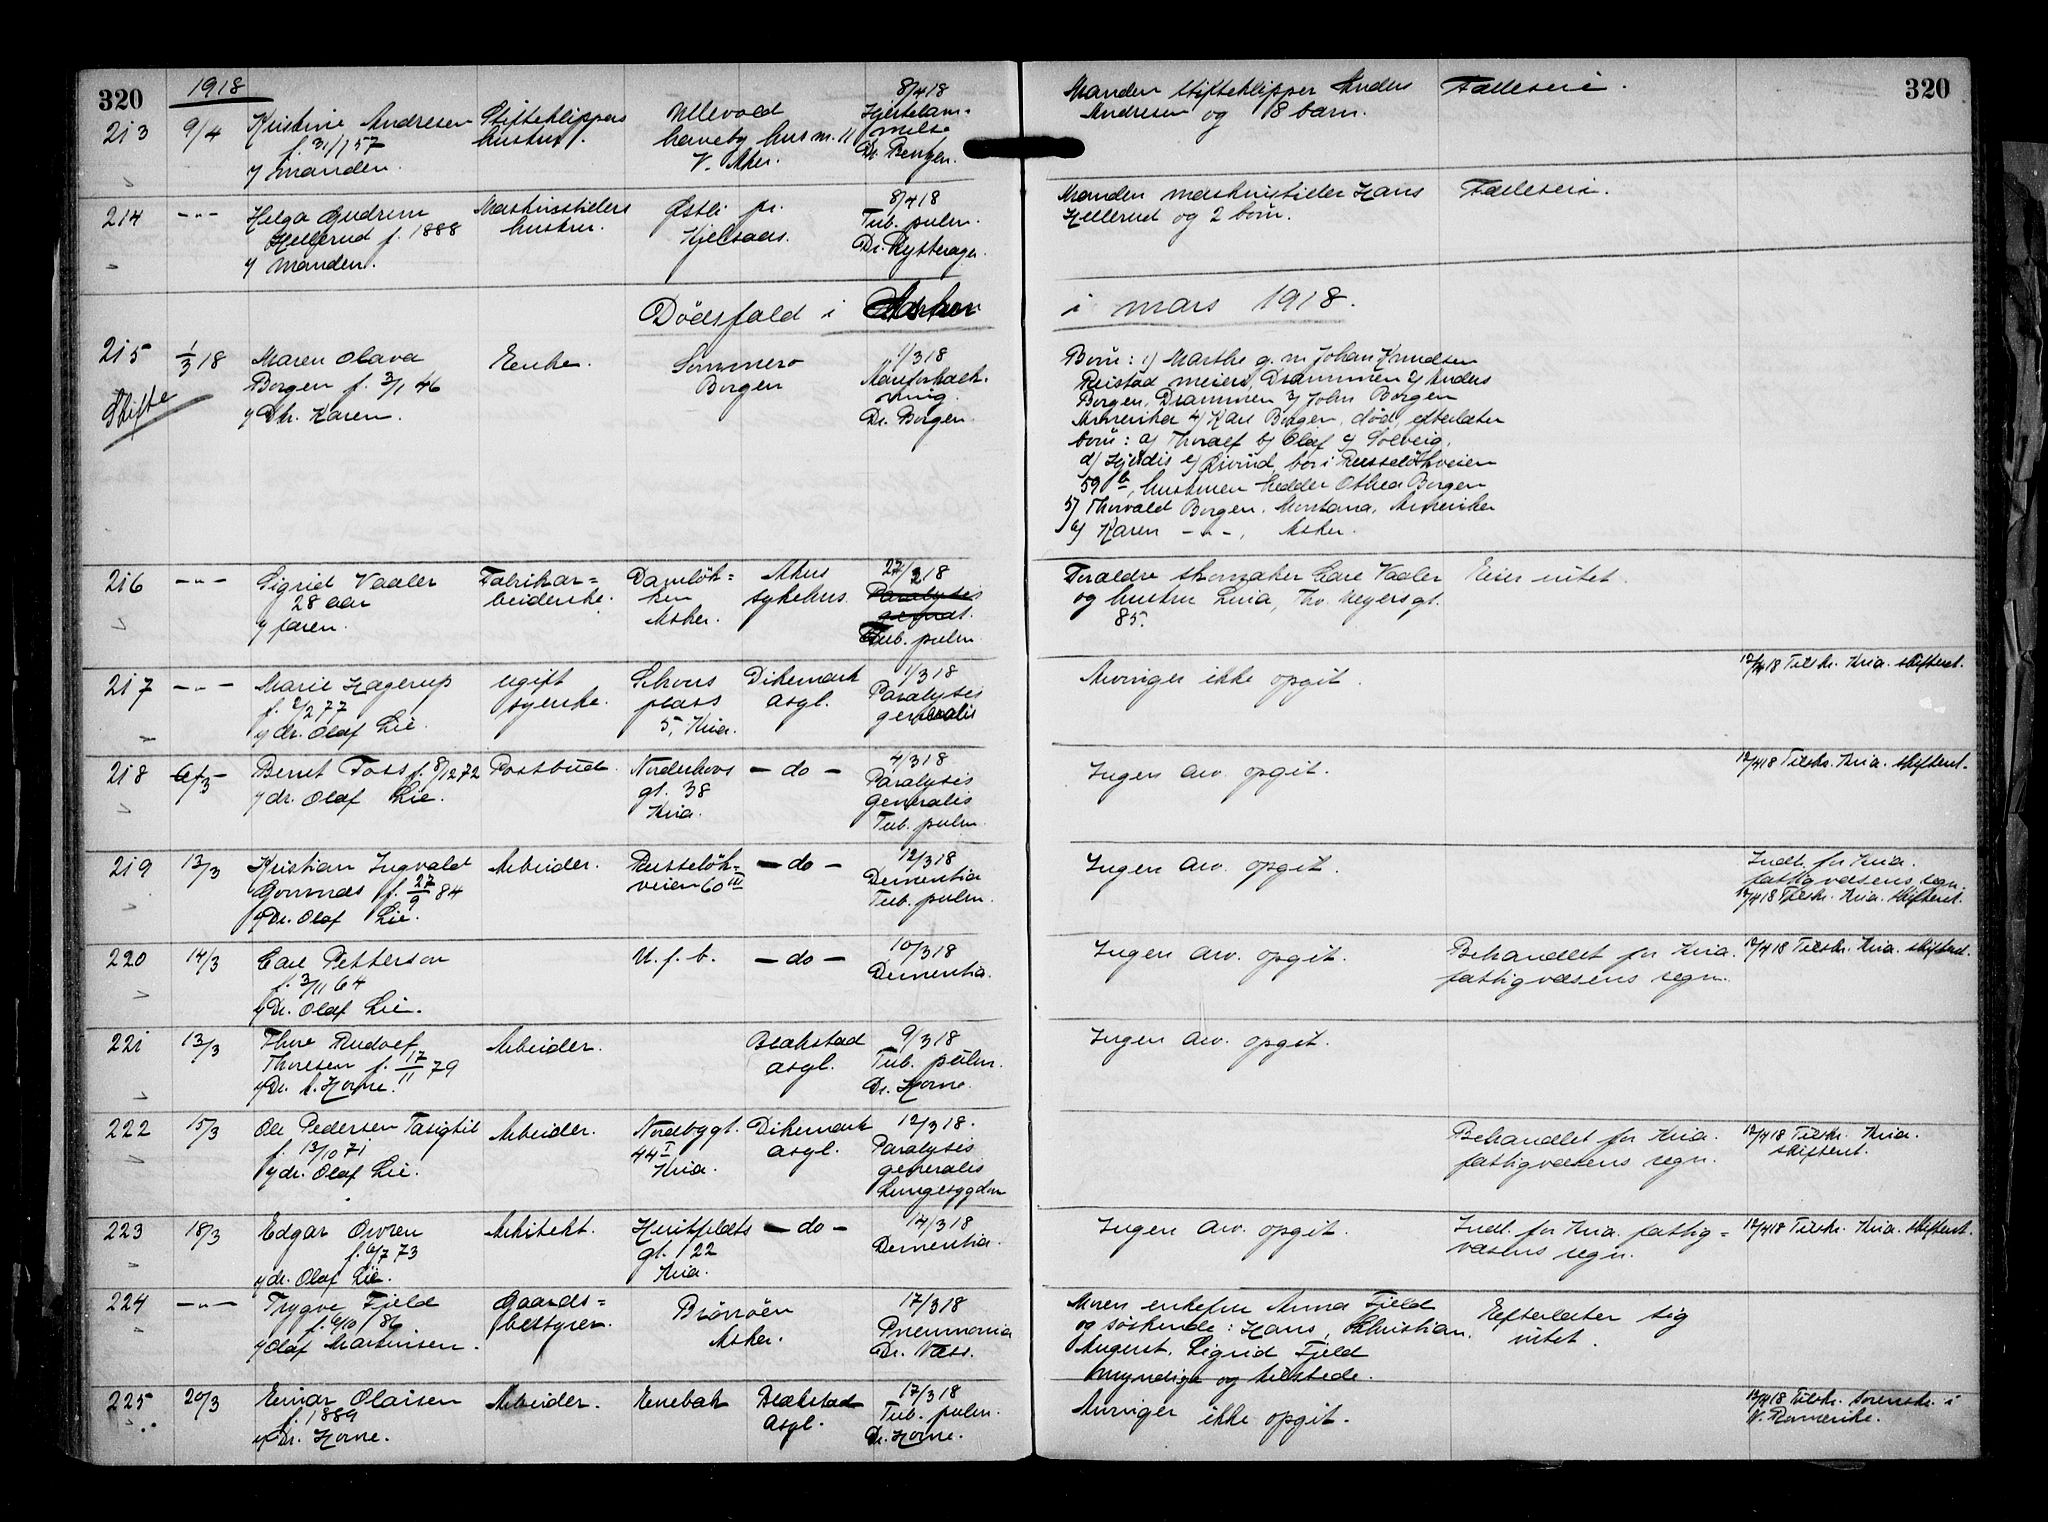 320
1918
213 9/4 Kristine Andresen Stifteklippers Ullevold 8/4 18
f. 31/1 57 hustru. haveby hus nr. 11 Hjertelam-
melse
v/ manden. V. Aker. Dr. Bentzen.
Manden stifteklipper Anders Fælleseie.
Andresen og 8 barn.
320
214 -"- Helga Gudrun Maskinstilers Østli pr. 8/4 18
Hellerud f. 1888 hustru. Kjelsaas. Tub. pulm.
v/ manden. Dr. Rytterager.
Manden maskinstiller Hans Fælleseie.
Hellerud og 2 børn.
Dödsfald i Asker i mars 1918.
215 1/3 18 Maren Olava Enke. Sommero 1/3 18
Skifte Borgen f. 3/1 46 Borgen
v/ Dtr. Karen. Dr. Borgen.
Børn: 1) Marthe g. m. Johan Knudsen
Reistad meieri, Drammen 2) Anders
Borgen, Drammen 3) John Borgen
Amerika 4) Karl Borgen, død, efterlater
børn: a) Thoralf b) Olaf c) Solveig,
d) Hjørdis e) Øivind, bor i Russeløkveien
59 b, hustruen hedder Othea Borgen
5) Thorvald Borgen, Montana, Amerika
6) Karen -"-, Asker.
216 -"- Sigrid Vaaler Fabrikar= Akers 27/2 18
28 aar beiderske. Asker. sykehus. Paralysis
v/ faren. Tub. pulm.
Forældre skomaker Carl Vaaler Eier intet.
og hustru Lina, Th. Meyersgt.
85.
217 -"- Marie Hagerup ugift Schous Dikemark 1/3 18
f. 2/2 77 syerske. plass asyl. Paralysis
v/ dr. Olaf Lie. 5, Kria. generalis
Arvinger ikke opgit. 12/4 18 Tilskr. Kria. skifteret.
218 4/3 Bernt Foss f. 8/12 72 Postbud. Norderhovs - do - 4/3 18
v/ dr. Olaf Lie. gt. 38 Paralysis
Kria. generalis
Tub. pulm.
Ingen arv. opgit. 12/4 18 Tilskr. Kria. skifteret.
219 13/3 Kristian Ingvald Arbeider. Russeløk= - do - 12/3 18
f. 27/9 84 veien 60 III Dementia
v/ Dr. Olaf Lie. Tub. pulm.
Ingen arv. opgit. Indl. for Kria.
fattigvæsens regn.
12/4 18 Tilskr. Kria. skifteret.
220 14/3 Carl Petterson U. f. b. - do - 10/3 18
f. 3/11 64 Dementia.
v/ Dr. Olaf Lie.
Ingen arv. opgit. Behandlet for Kria. 12/4 18 Tilskr. Kria. skifteret.
fattigvæsens regn.
221 13/3 Thore Rudolf Arbeider. Blakstad 9/3 18
Thoresen f. 17/11 79 asyl. Tub. pulm.
v/ Dr. Horne. Dr. Horne.
Ingen arv. opgit.
222 15/3 Ole Pedersen Arbeider. Nordbygt. Dikemark 12/3 18.
f. 13/10 71 44 I asyl. Paralysis
v/ dr. Olaf Lie. Kria. generalis
Lungesygdom
Behandlet for Kria. 12/4 18 Tilskr. Kria.
fattigvæsens regn. skifteret.
223 18/3 Edgar Owren Arkitekt. Huitfeldts - do - 14/3 18
f. 6/7 73 gt. 22 Dementia.
v/ dr. Olaf Lie. Kria.
Ingen arv. opgit. Indl. for Kria. fattig= 12/4 18 Tilskr. Kria. skifteret.
væsens regn.
224 -"- Trygve Fjeld Gaards= Brønnøen 17/3 18
f. 6/10 86 bestyrer. Asker. Pneumonia
v/ Olaf Martinsen. Dr. Næss.
Moren enkefru Anna Fjeld Efterlater sig
og søskende: Hans, Christian. intet.
August, Sigrid Fjeld
myndige og tilstede.
225 20/3 Einar Olaisen Arbeider. Enebak Blakstad 17/3 18
f. 1889 asyl. Tub. pulm.
v/ Dr. Horne. Dr. Horne.
Arvinger ikke opgit. 12/4 18 Tilskr. Sorenskr. i
N. Romerike.